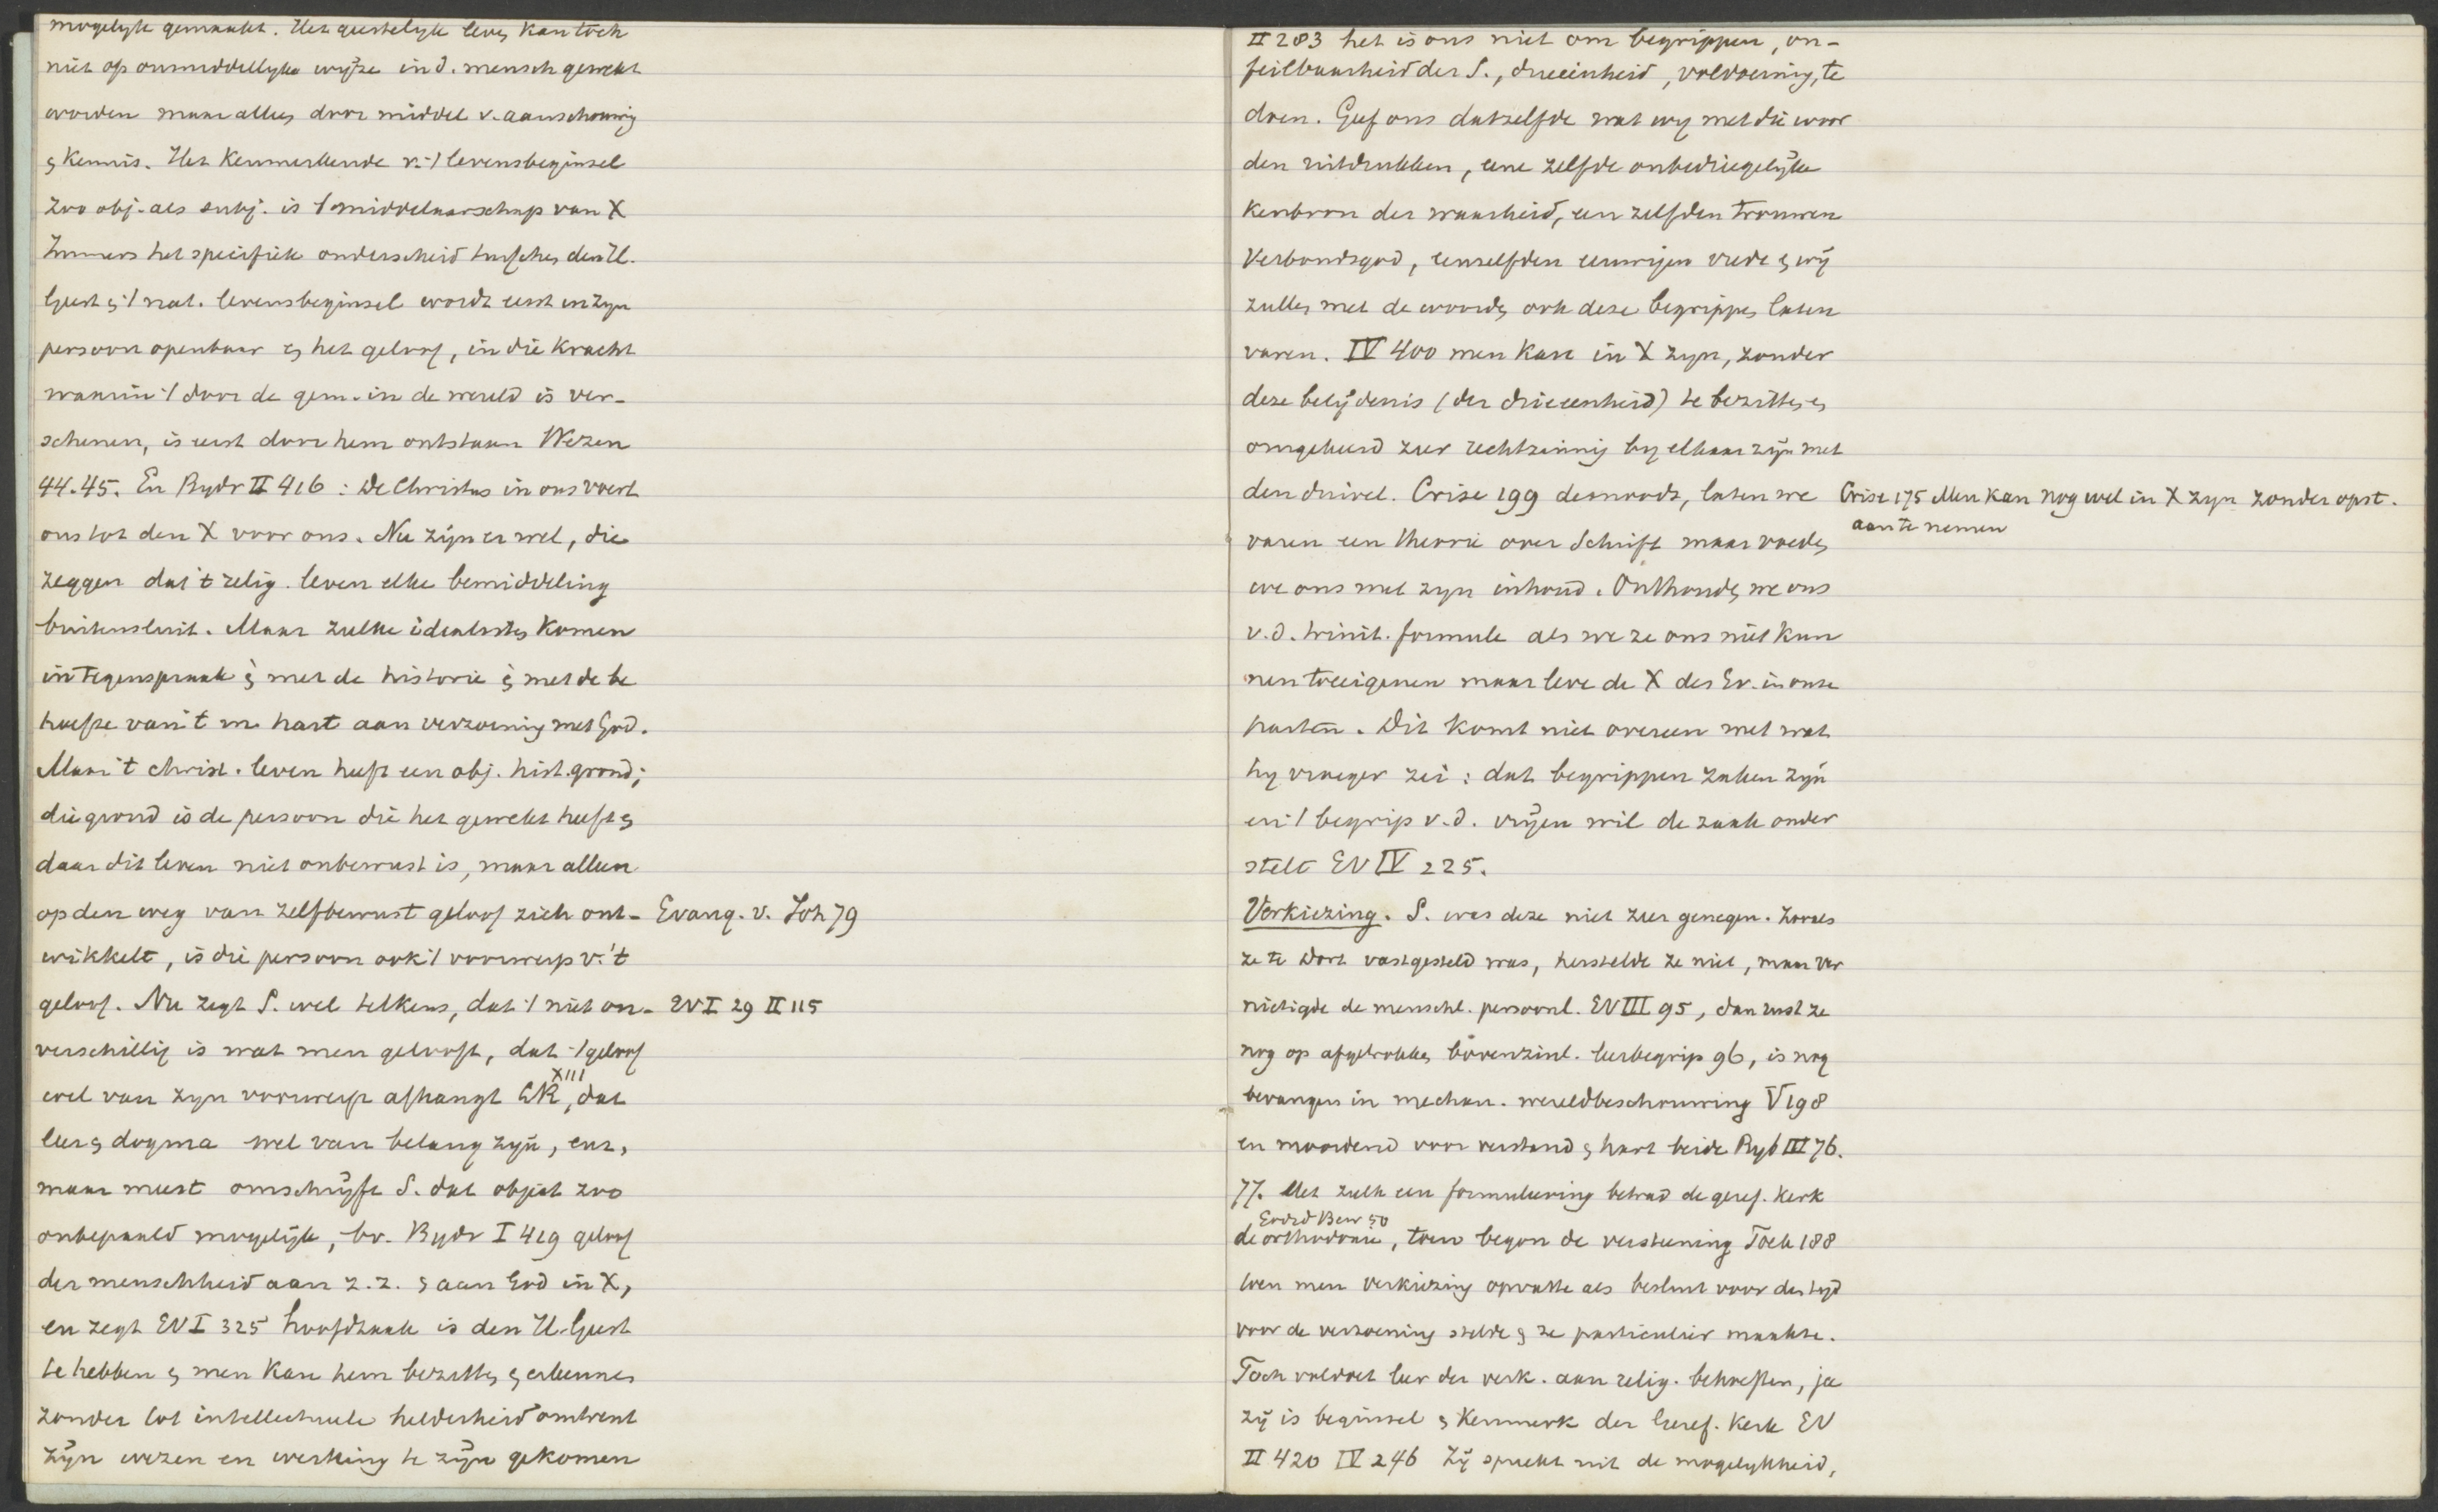 mogelyk gemaakt. Het geestelyk leven kan toch
niet op onmiddellyke wijze in d. mensch gewekt
worden maar alles door middel v. aanschouwing
& kennis. Het kenmerkende v. 't levensbeginsel
zoo obj. als subj. is 't middelaarschap van X
Immers het specifiek onderscheid tusschen den H.
Geest & 't nat. levensbeginsel wordt eerst in zyn
persoon openbaar & het geloof, in die kracht
waarin 't door de gem. in de wereld is ver-
schenen, is eerst door hem ontstaan Wezen
44.45. En Bydr II 416: De Christus in ons voert
ons tot den X voor ons. Nu zijn er wel, die
zeggen dat 't relig. leven elke bemiddeling
buitensluit. Maar zulke idealisten komen
in tegenspraak & met de historie & met de be
hoefte van 't m hart aan verzoening met God.
Maar 't christ. leven heeft een obj. hist. grond;
die grond is de persoon die het gewekt heeft &
daar dit leven niet onbewust is, maar alleen
op den weg van zelfbewust geloof zich ont- Evang. v. Joh 79
wikkelt, is die persoon ook 't voorwerp v. 't
geloof. Nu zegt S. wel telkens, dat 't niet on- EV I 29 II 115
verschillig is wat men gelooft, dat 't geloof
wel van zyn voorwerp afhangt LR XIII, dat
leer & dogma wel van belang zyn, enz,
maar meest omschrijft S. dat object zoo
onbepaald mogelijk, bv. Bydr I 419 geloof
der menschheid aan z.z. & aan God in X,
en zegt EV I 325 hoofdzaak is den H. Geest
te hebben & men kan hem bezitten & erkennen
zonder tot intellectueele helderheid omtrent
zijn wezen en werking te zijn gekomen
II 283 het is ons niet om begrippen, on-
feilbaarheid der S., drieeinheid, voldoening, te
doen. Geef ons datzelfde wat wy met die woor
den uitdrukken, eene zelfde onbedriegelijke
kenbron der waarheid, een zelfden trouwen
Verbondsgod, eenzelfden eeuwigen vrede & wij
zullen met de woorden ook deze begrippen laten
varen. IV 400 men kan in X zyn, zonder
deze belijdenis (der drieeenheid) te bezitten &
omgekeerd zeer rechtzinnig by elkaar zijn met
den duivel. Crise 199 desnoods, laten we
Crise 175 Men kan nog wel in X zyn zonder opst.
aan te nemen
varen een theorie over Schrift maar voeden
we ons met zyn inhoud. Onthouden we ons
v.d. trinit. formule als we ze ons niet kun
nen toeeigenen maar leve de X des Ev. in onze
harten. Dit komt niet overeen met wat
hy vroeger zei: dat begrippen zaken zijn
en 't begrip v.d. vrijen wil de zaak onder
stelt EV IV 225.
Verkiezing. S. was deze niet zeer genegen. Zooals
ze te Dort vastgesteld was, herstelde ze niet, maar ver
nietigde de menschl. persoonl. EV III 95, dan rust ze
nog op afgetrokken bovenzinl. leerbegrip 96, is nog
bevangen in mechan. wereldbeschouwing V 198
en moordend voor verstand & hart beide Byd III 76.
77. Met zulk een formuleering betrad de geref. kerk
Godsd Bew 50
de orthodoxie, toen begon de versteening Toek 188
toen men verkiezing opvatte als besluit voor den tyd
voor de verzoening stelde & ze particulier maakte.
Toch voldoet leer der verk. aan relig. behoeften, ja
zij is beginsel & kenmerk der Geref. Kerk EV
II 420 IV 246 Zij spreekt uit de mogelykheid,